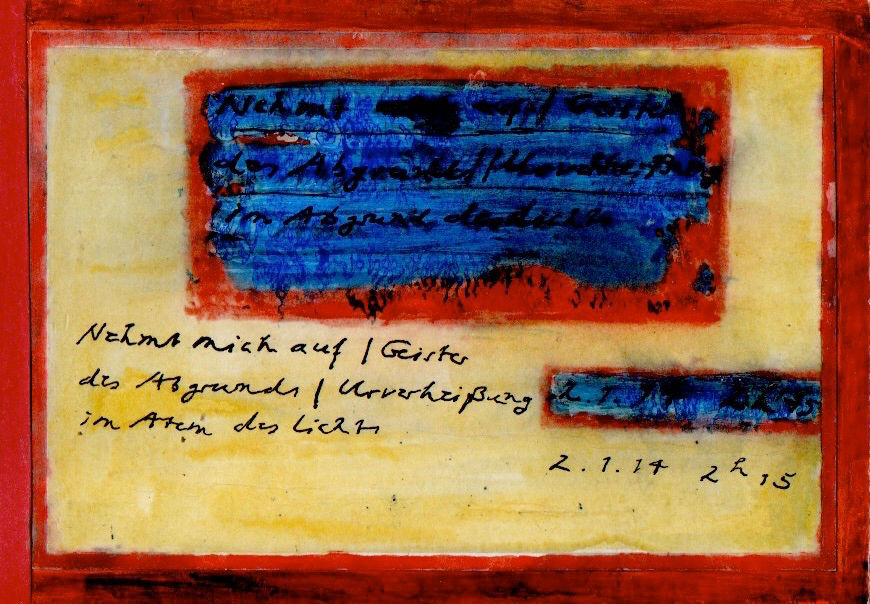 Nehmt auf / Geister
des Abgrunds / Urverheißung
im Abgrund des Lichts
Nehmt mich auf / Geister
des Abgrunds / Urverheißung
im Atem des Lichts
2. 1. 14 2h 15
2. 1. 14 2h 15